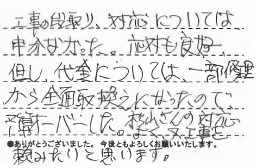 工事の段取り、対応については
申分なかった。応対も良好、
但し、代金については、一部修理
から全面取換えになったので、
予算オーバーした。杉山さんの対応
よく、又工事を
●ありがとうございました。今後ともよろしくお願いいたします。
頼みたいと思います。